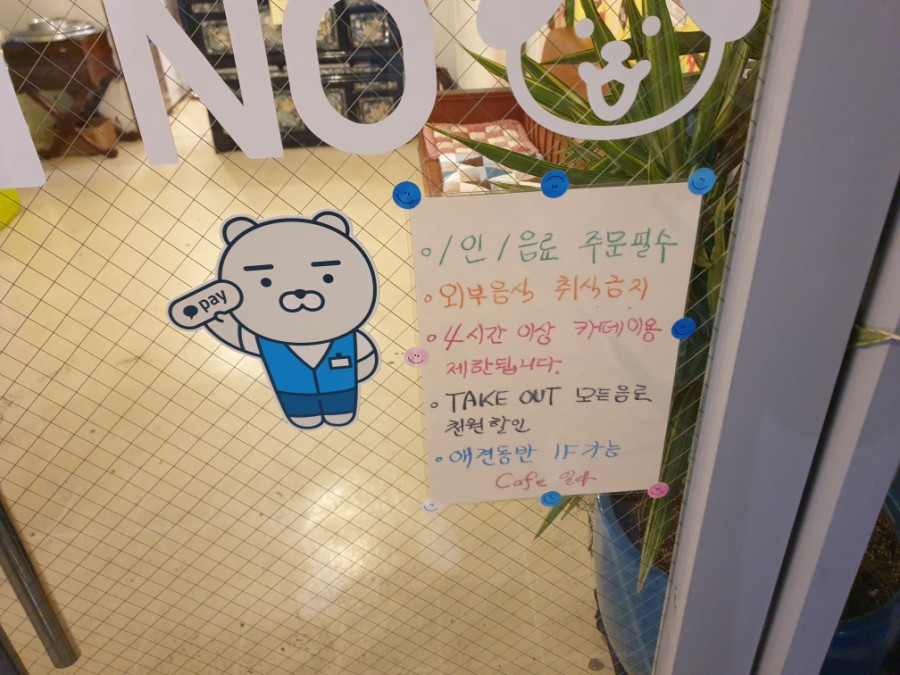 NO
pay
1인 1음료 주문필수
외부음식 취식금지
4시간 이상 카페이용
제한됩니다.
TAKE OUT 모든음료
천원할인
애견동반 1F 가능
Cafe